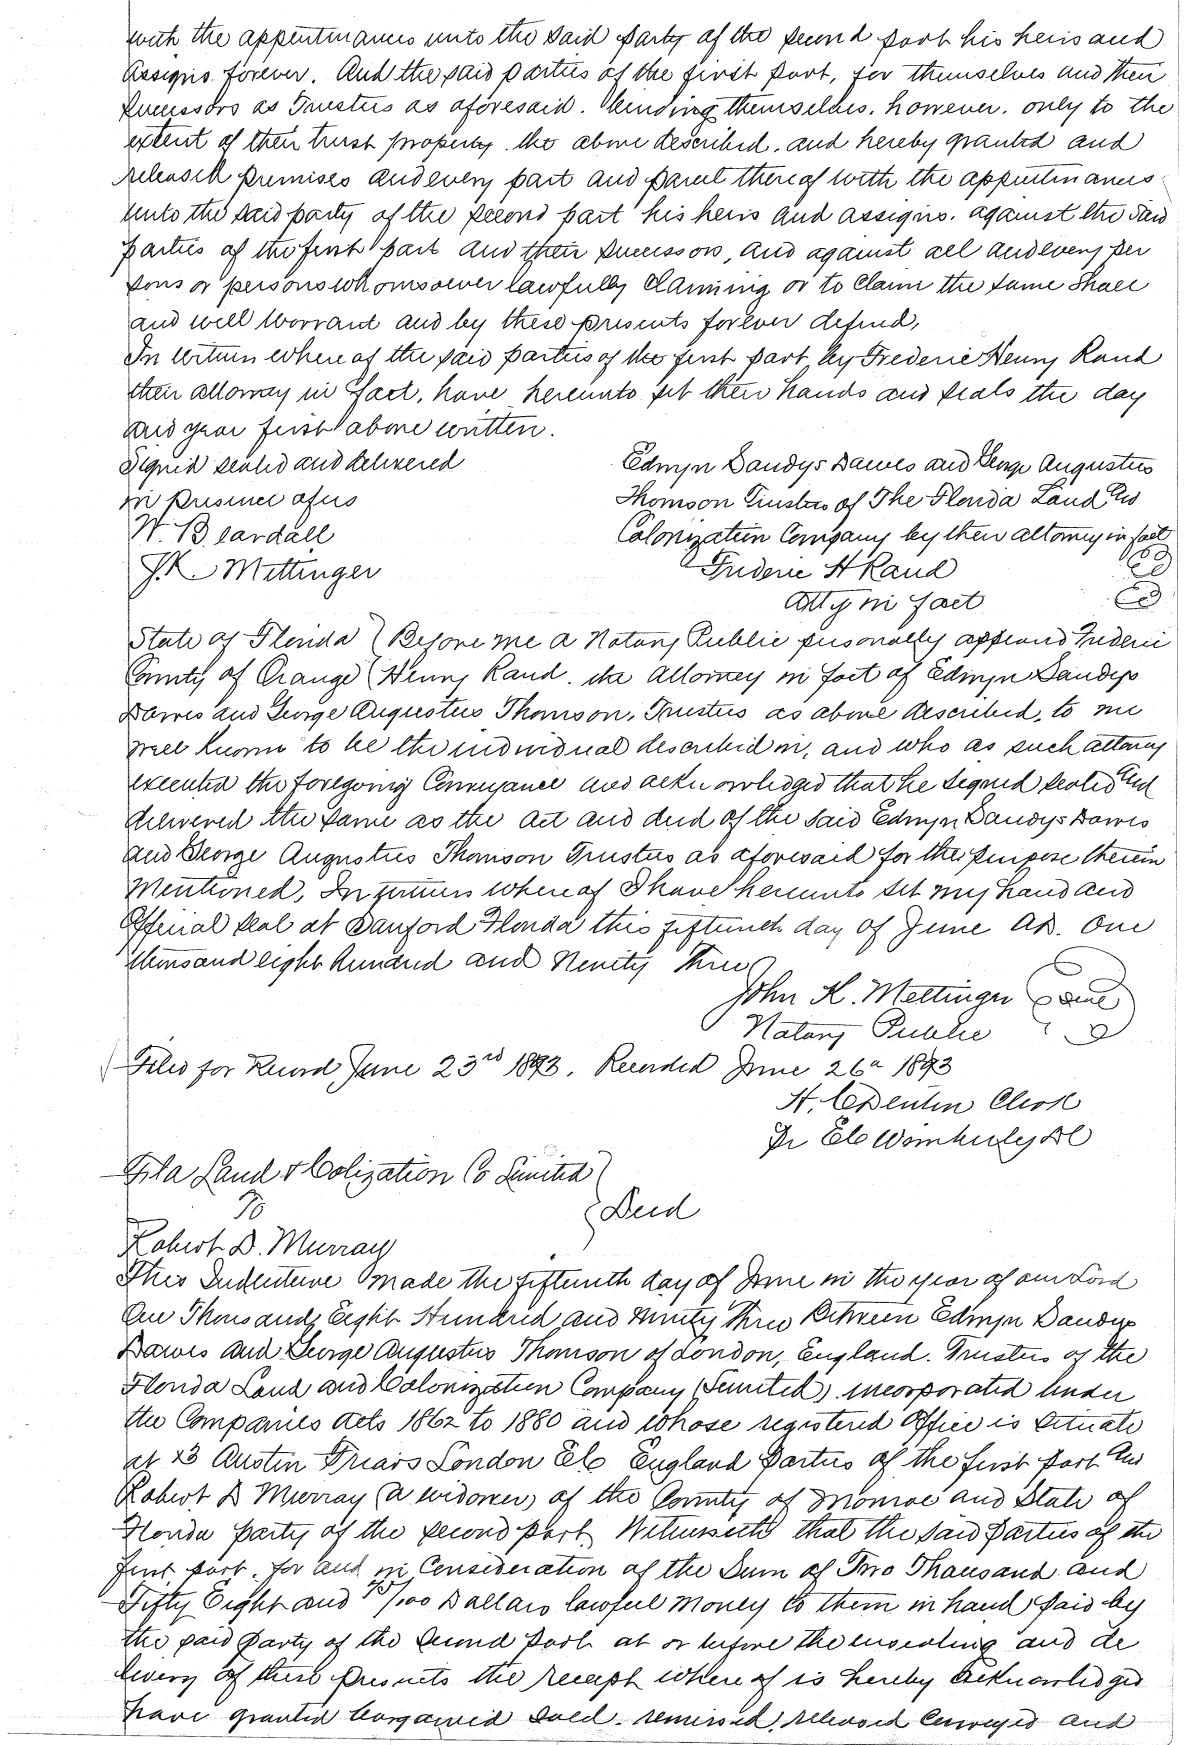 with the appurtinances unto the said party of the second part his heirs and
Assigns forever. And the said parties of the first part, for themselves and their
successors as Trustees as aforesaid. binding themselves. however. only to the
extent of their trust property. the above described. and hereby granted and
released premises and every part and parcel thereof with the appurtinances
unto the said party of the second part his heirs and assigns. against the said
parties of the first part and their successors, and against all and every per
sons or persons whomsoever lawfully claiming or to claim the same shall
and will warrant and by these presents forever defend,
In witness where of the said parties of the first part, by Frederic Henry Rand
their attorney in fact, have hereunto set their hands and seals the day
and year first above written.
Signed sealed and delivered
in presence of us
W. Beardall
J. K. Mettinger
Edmyn Sandys Dawes and George Augustus
Thomson Trustees of The Florida Land and
Colonization Company by their attorney in fact
Frederic H Rand
Atty in fact
State of Florida } Before me a Notary Public personally appeared Frederic
County of Orange } Henry Rand. the Attorney in fact of Edmyn Sandys
Dawes and George Augustus Thomson, Trustees as above described, to me
well known to be the individual described in, and who as such attorney
executed the foregoing Conveyance and acknowledged that he signed sealed and
delivered the same as the act and deed of the said Edmyn Sandys Dawes
and George Augustus Thomson Trustees as aforesaid for the purpose therein
Mentioned, In witness where of I have hereunto set my hand and
Official seal at Sanford Florida this fifteenth day of June AD. One
thousand eight hundred and Ninety Three
John K. Mettinger
Notary Public
Filed for Record June 23rd 1893. Recorded June 26th 1893
H. C Denton Clerk
Pr E C Wimberly DC
Fla Land & Colization Co Limited }
To } Deed
Robert D. Murray
This Indenture made the fifteenth day of June in the year of our Lord
One Thousand Eight Hundred and Ninety Three Between Edmyn Sandys
Dawes and George Augustus Thomson of London, England. Trustees of the
Florida Land and Colonization Company (Limited). incorporated under
the Companies Acts 1862 to 1880 and whose registered Office is situate
at 13 Austin Friars London EC England Parties of the first part and
Robert D Murray (a widower) of the County of Monroe and State of
Florida party of the second part. Witnesseth that the said parties of the
first part. for and in Consideration of the Sum of Two Thousand and
Fifty Eight and /100 Dollars lawful money to them in hand paid by
the said party of the second part at or before the ensealing and de
livery of these presents the receipt where of is hereby acknowledged
have granted bargained sold. remised, released conveyed and